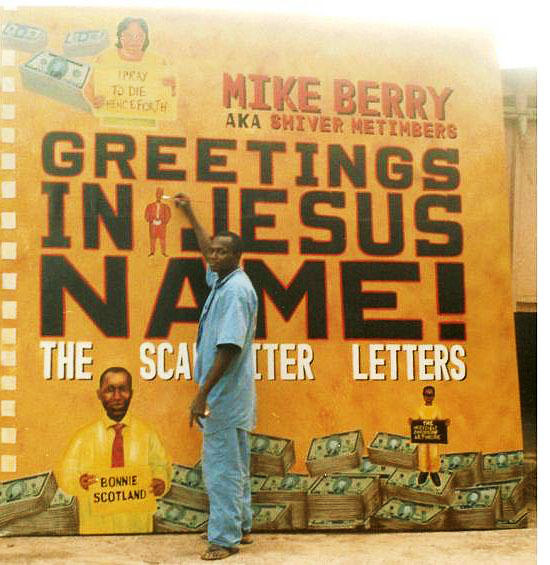 I PRAY
TO DIE
HENCEFORTH
MIKE BERRY
AKA SHIVER METIMBERS
GREETINGS
IN JESUS
NAME!
THE SCA ITER LETTERS
BONNIE
SCOTLAND
THE